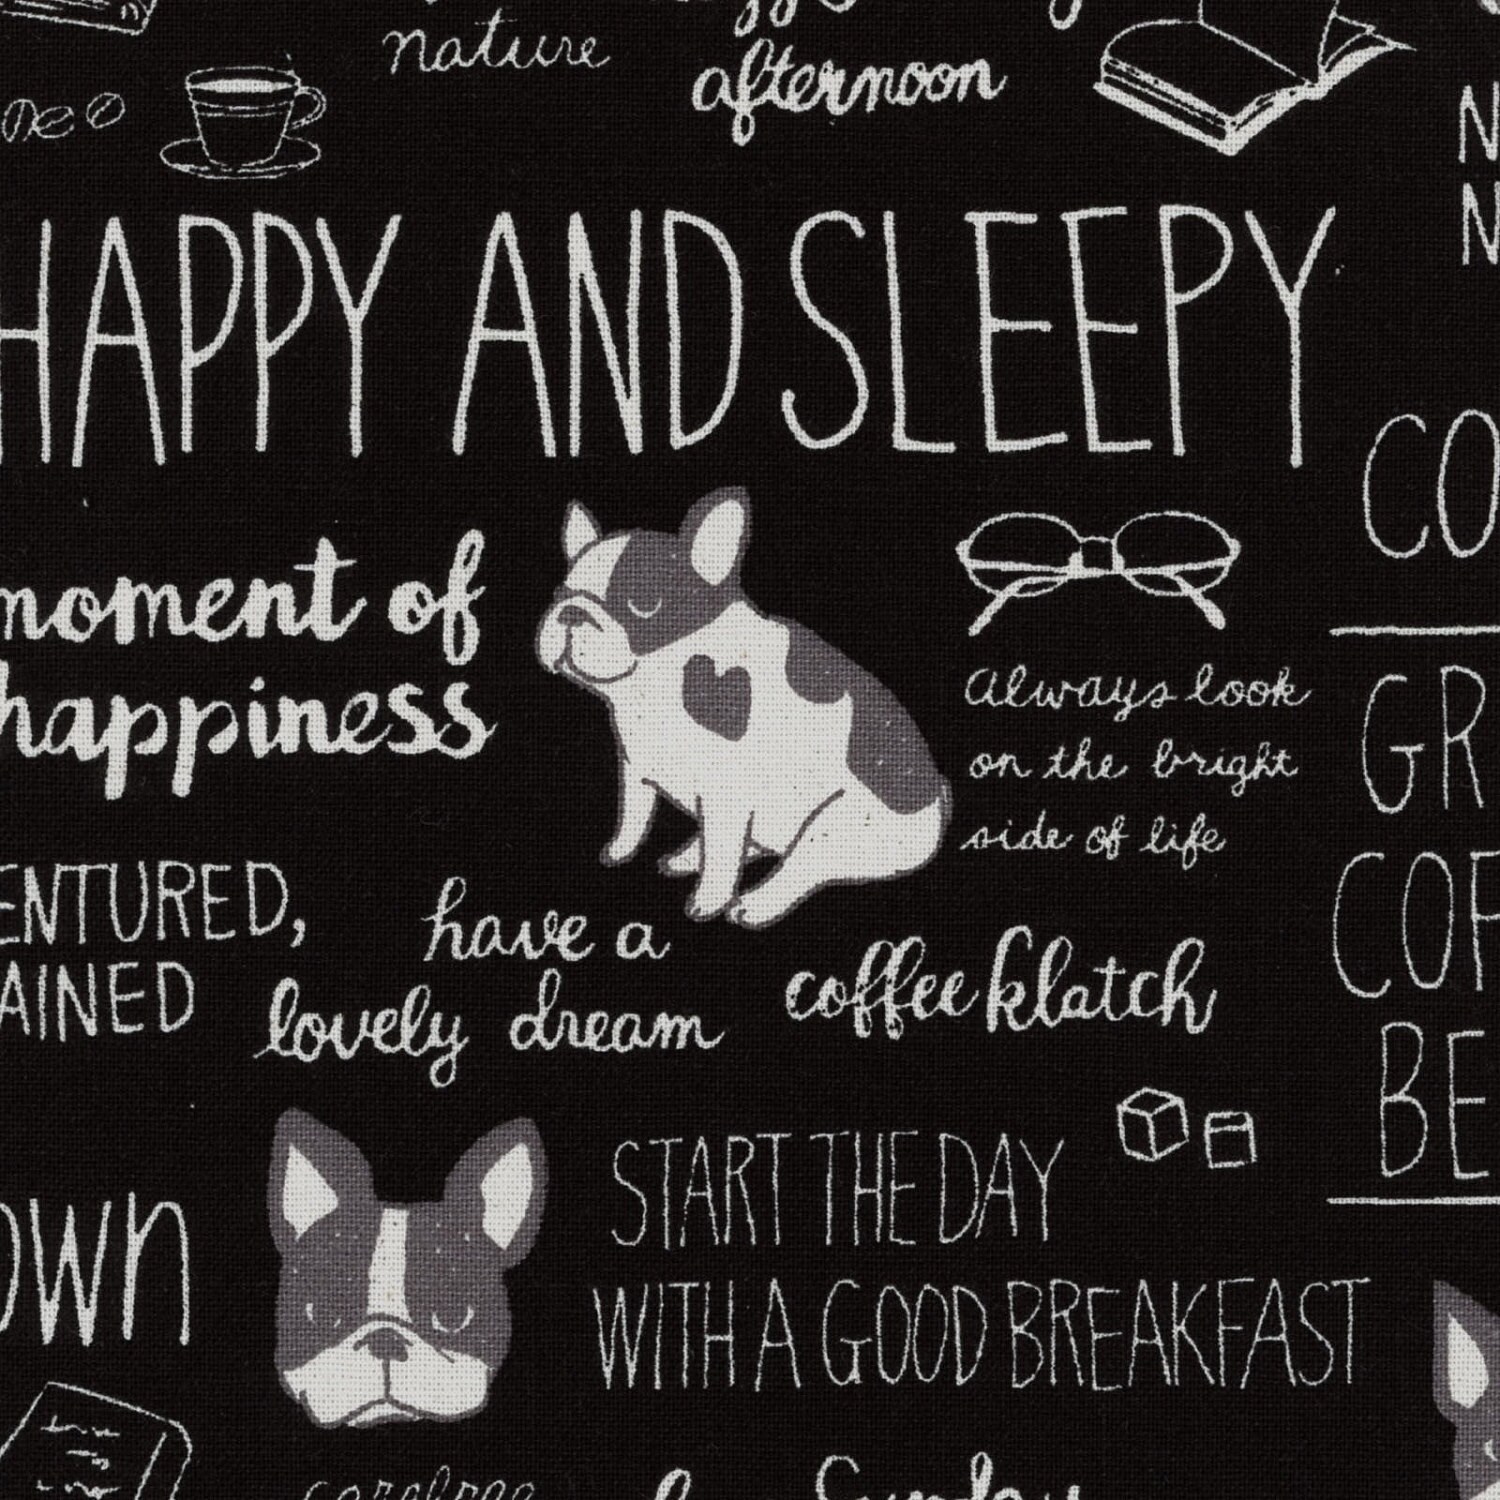 nature
afternoon
HAPPY AND SLEEPY
moment of
happiness
always look
on the bright
side of life
have a
lovely dream
coffee klatch
START THE DAY
WITH A GOOD BREAKFAST
carefree
Sunday